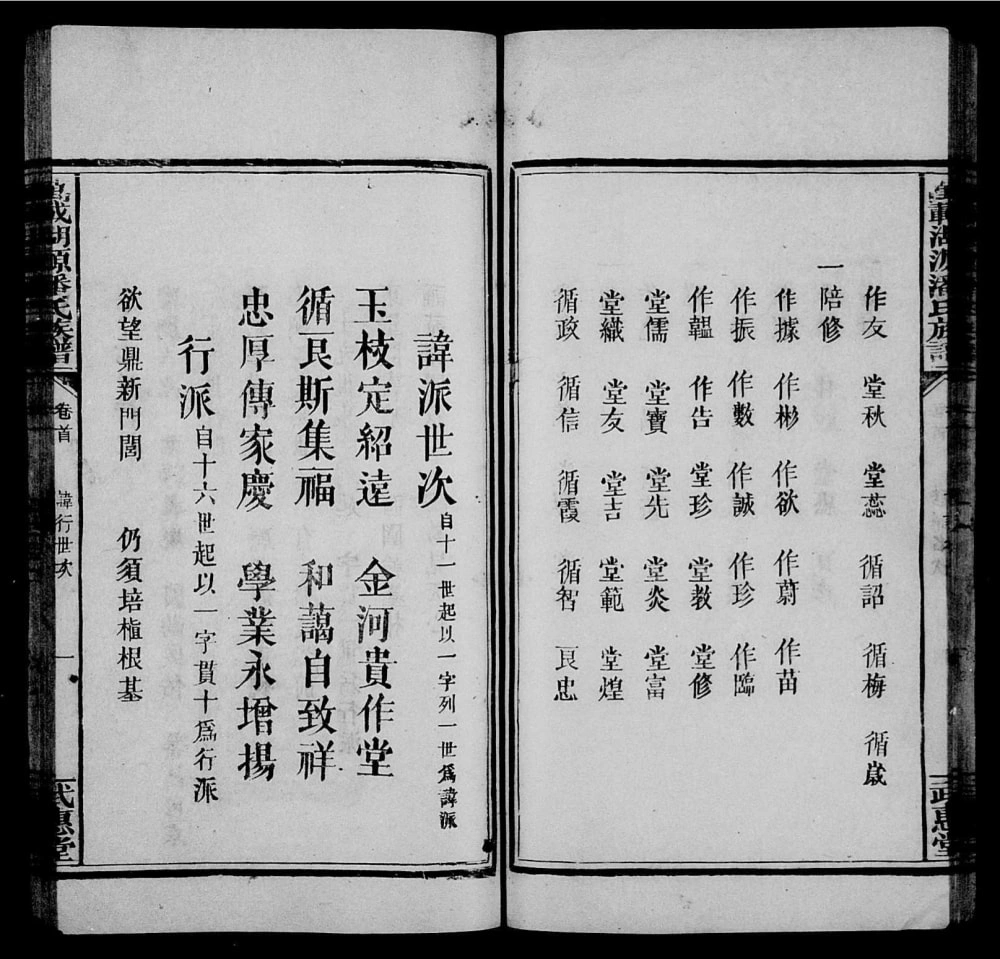 作友 堂秋 堂蕊 循詔 循梅 循嵗
一陪修
作據 作彬 作欲 作蔚 作苗
作振 作數 作誠 作珍 作臨
作韞 作告 堂珍 堂教 堂修
堂儒 堂寶 堂先 堂炎 堂富
堂纖 堂友 堂吉 堂範 堂煌
循政 循信 循霞 循智 良忠
武惠堂
諱派世次 自十一世起以一字列一世爲諱派
玉枝定紹遠 金河貴作堂
循良斯集福 和藹自致祥
忠厚傳家慶 學業永增揚
行派 自十六世起以一字貫十爲行派
欲望鼎新門閭 仍須培植根基
湖源潘氏族譜 卷首 諱行世次 一 武惠堂